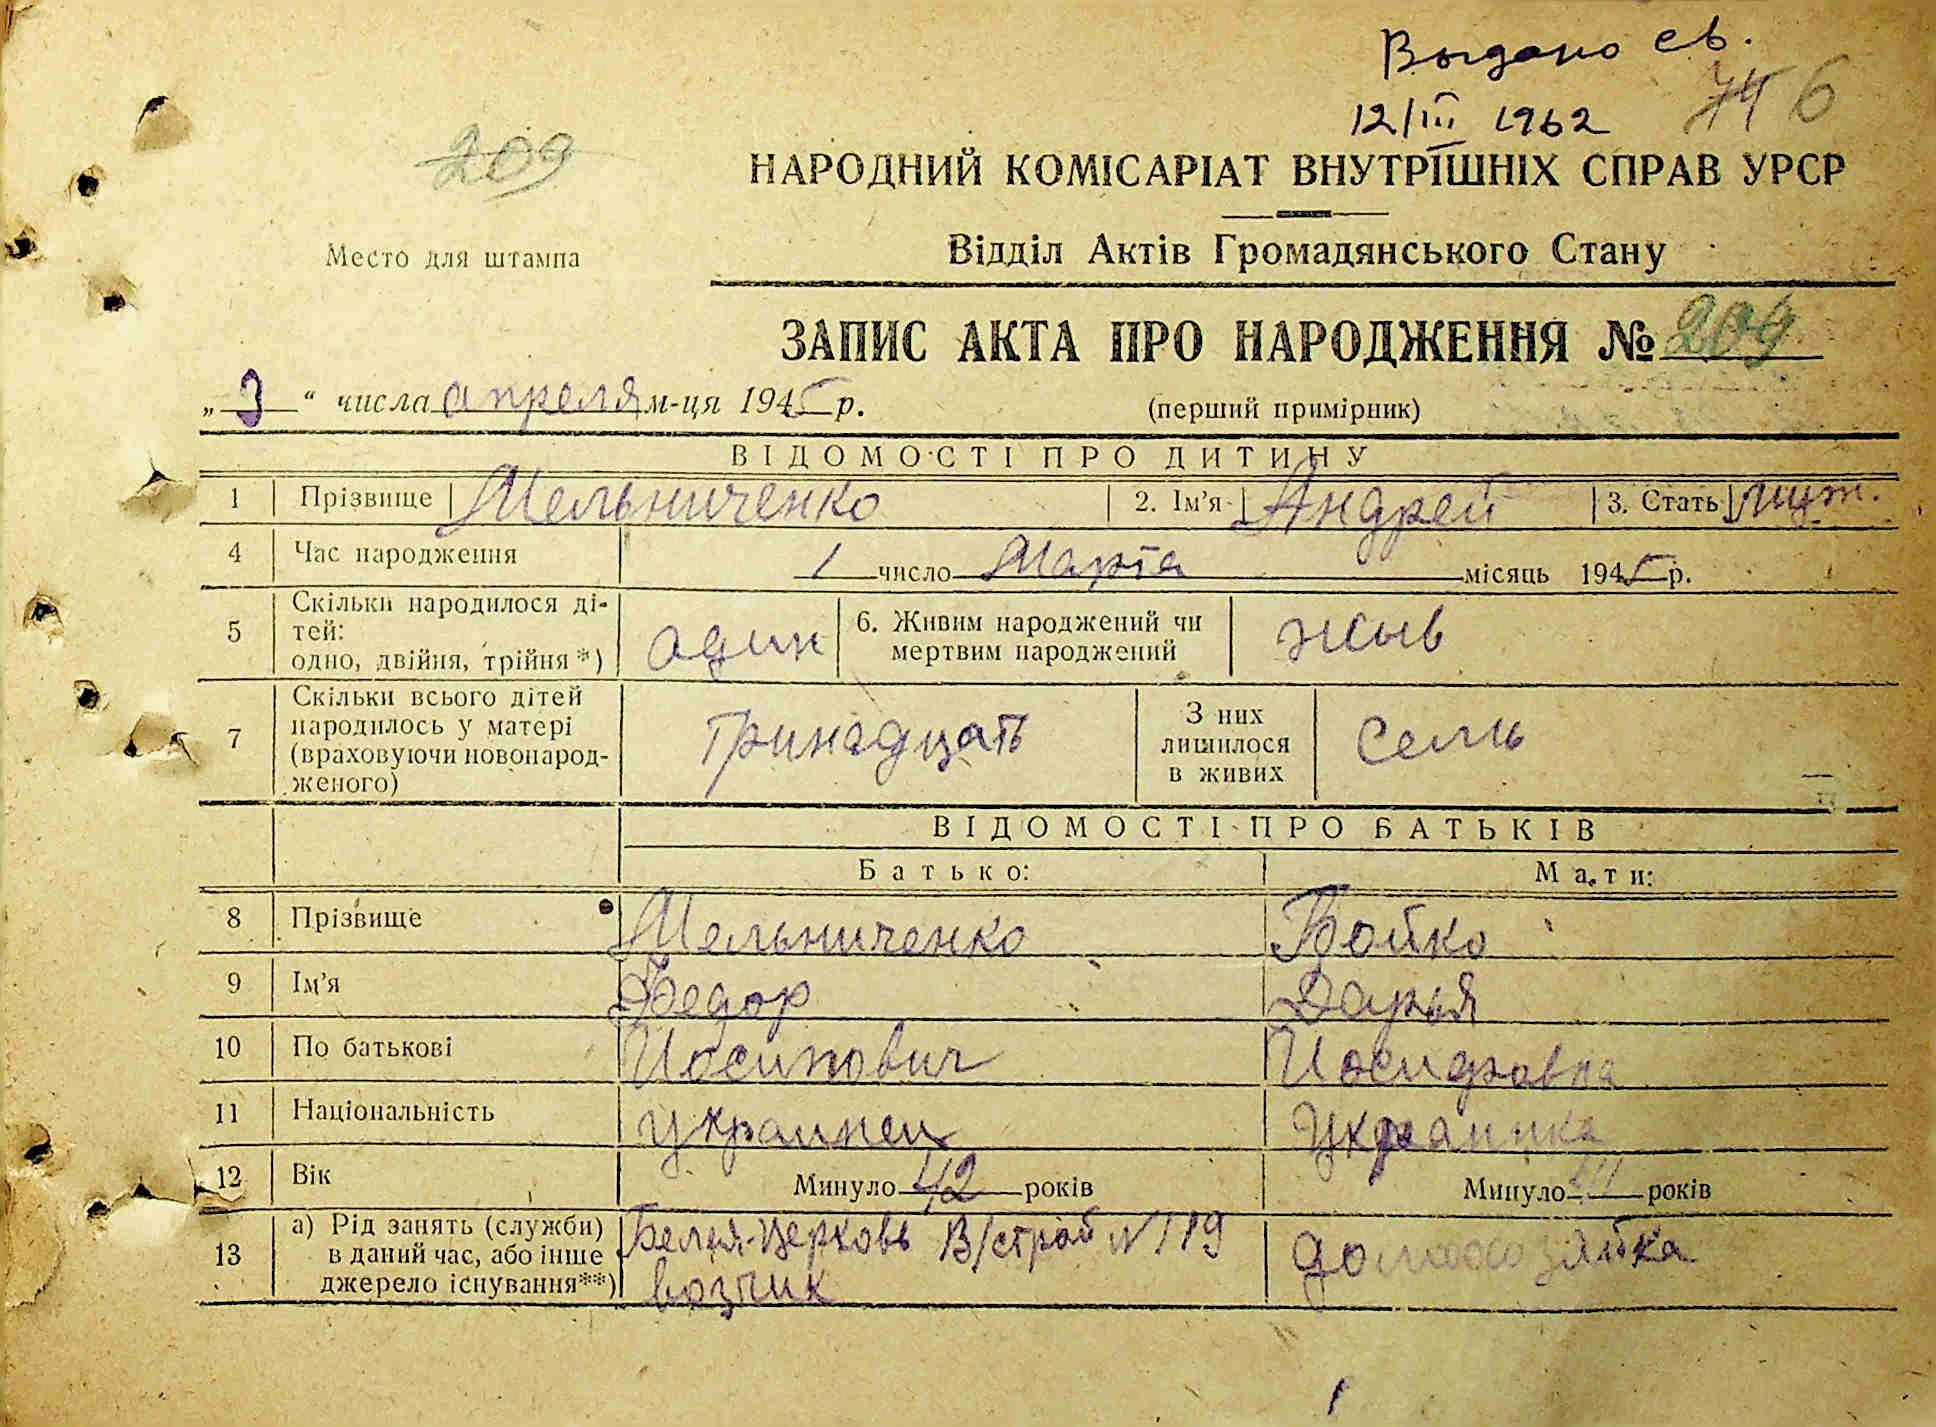 Выдано св.
12/III 1962
746
209
НАРОДНИЙ КОМІСАРІАТ ВНУТРІШНІХ СПРАВ УРСР
Место для штампа
Відділ Актів Громадянського Стану
ЗАПИС АКТА ПРО НАРОДЖЕННЯ № 209
„3“ числа апреля м-ця 1945 р.
(перший примірник)
ВІДОМОСТІ ПРО ДИТИНУ
1 Прізвище Мельниченко 2. Ім'я Андрей 3. Стать муж.
4 Час народження 1 число Марта місяць 1945 р.
5 Скільки народилося ді-
тей:
одно, двійня, трійня*) один
6. Живим народжений чи
мертвим народжений жыв
7 Скільки всього дітей
народилось у матері
(враховуючи новонарод-
женого) Тринадцать
З них
лишилося
в живих семь
ВІДОМОСТІ ПРО БАТЬКІВ
Батько: Мати:
8 Прізвище Мельниченко Бойко
9 Ім'я Федор Дарья
10 По батькові Иосипович Иосифовна
11 Національність украинец Украинка
12 Вік Минуло 42 років Минуло років
13 а) Рід занять (служби)
в даний час, або інше
джерело існування**)
Белая-Церковь В/строй № 119
возчик
домохозяйка